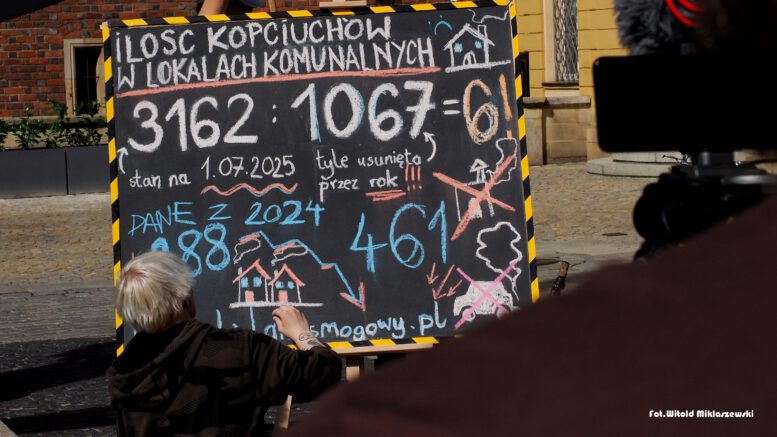 ILOŚĆ KOPCIUCHÓW
W LOKALACH KOMUNALNYCH
3162 : 1067 = 6!
stan na 1.07.2025
tyle usunięto
przez rok
DANE Z 2024
461
smogowy.pl
Fot.Witold Miklaszewski